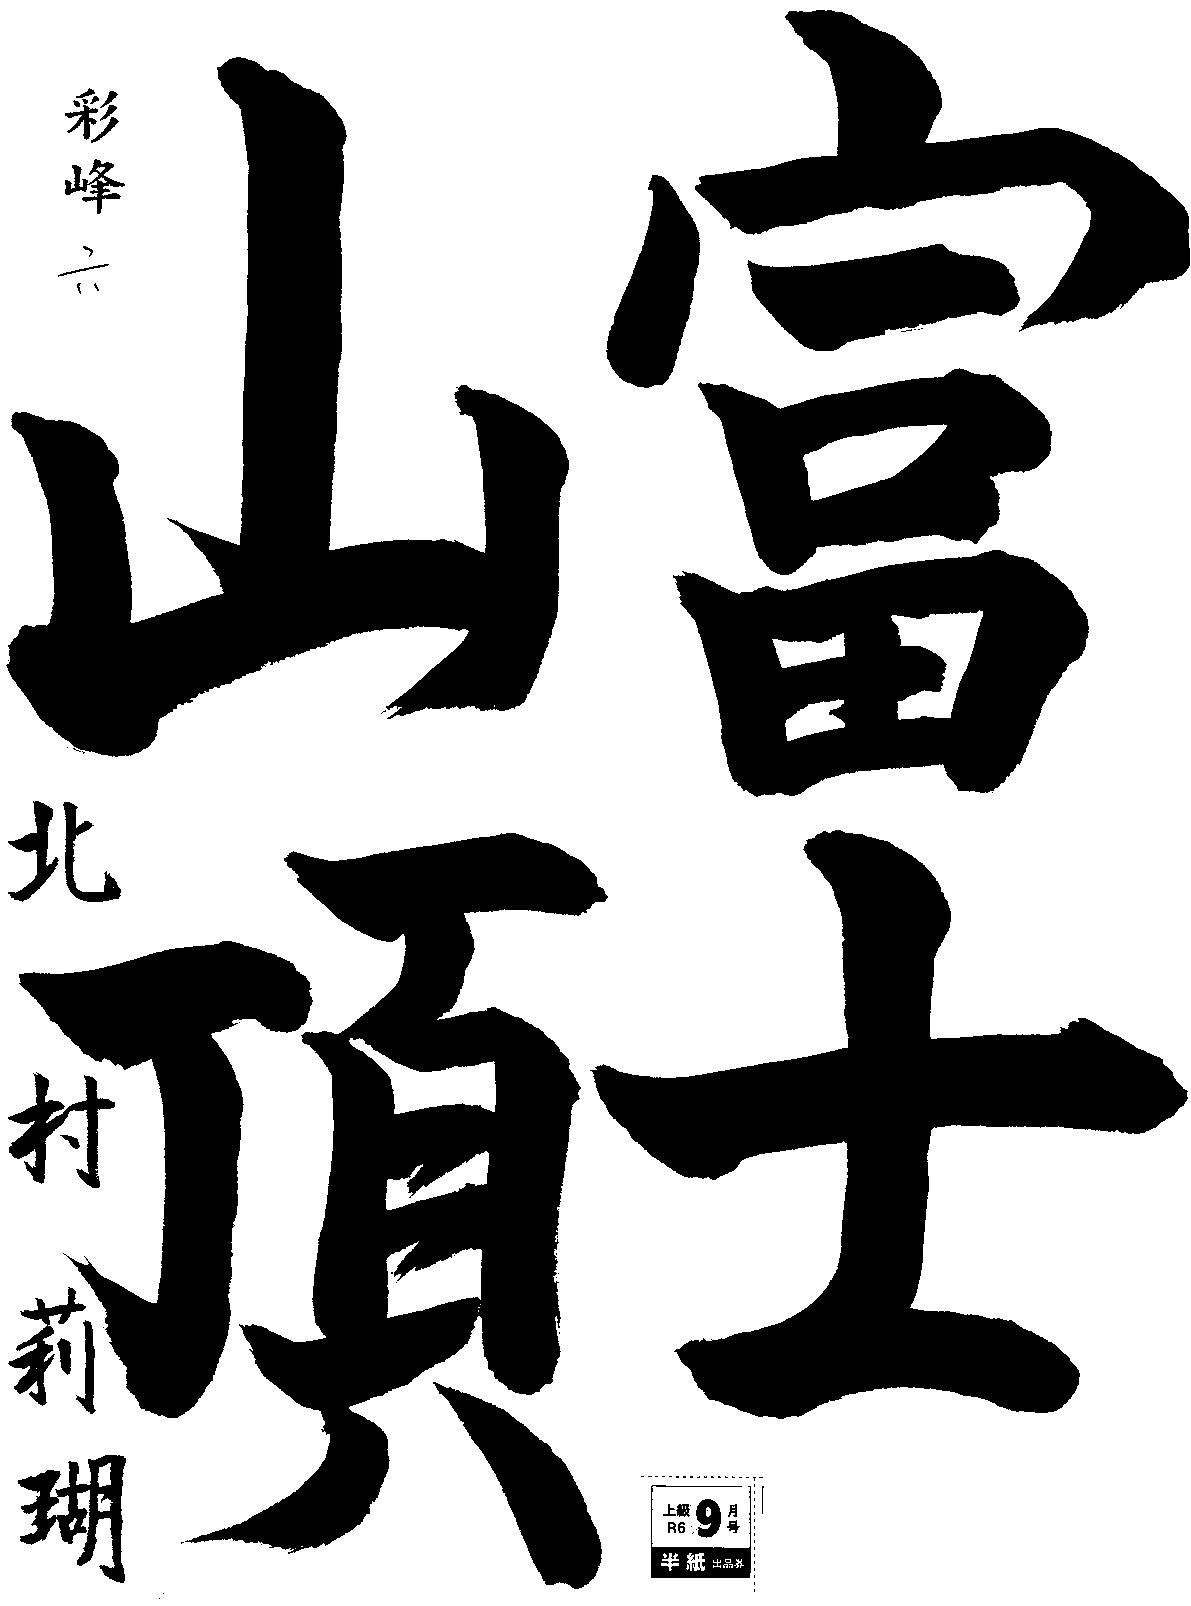 富士
山頂
彩峰 六
北村莉瑚
上級 R6 9月号
半紙 出品券